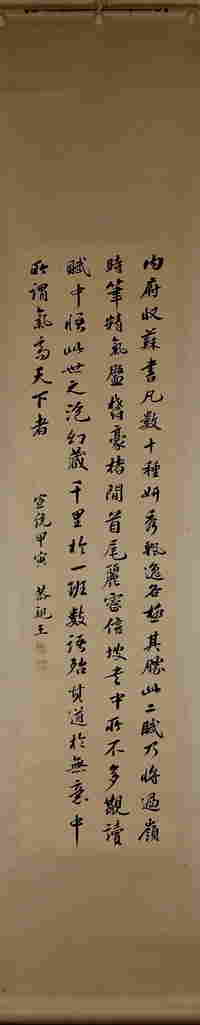 内府收蘇書凡数十種妍秀飛逸各極其勝此二賦乃將過嶺
時筆精氣盤鬱豪楮間首尾麗富信坡書中所不多觀讀
賦中悟此世之泡幻藏千里於一班数語殆其道於無意中
所謂氣高天下者
宣統甲寅 恭親王